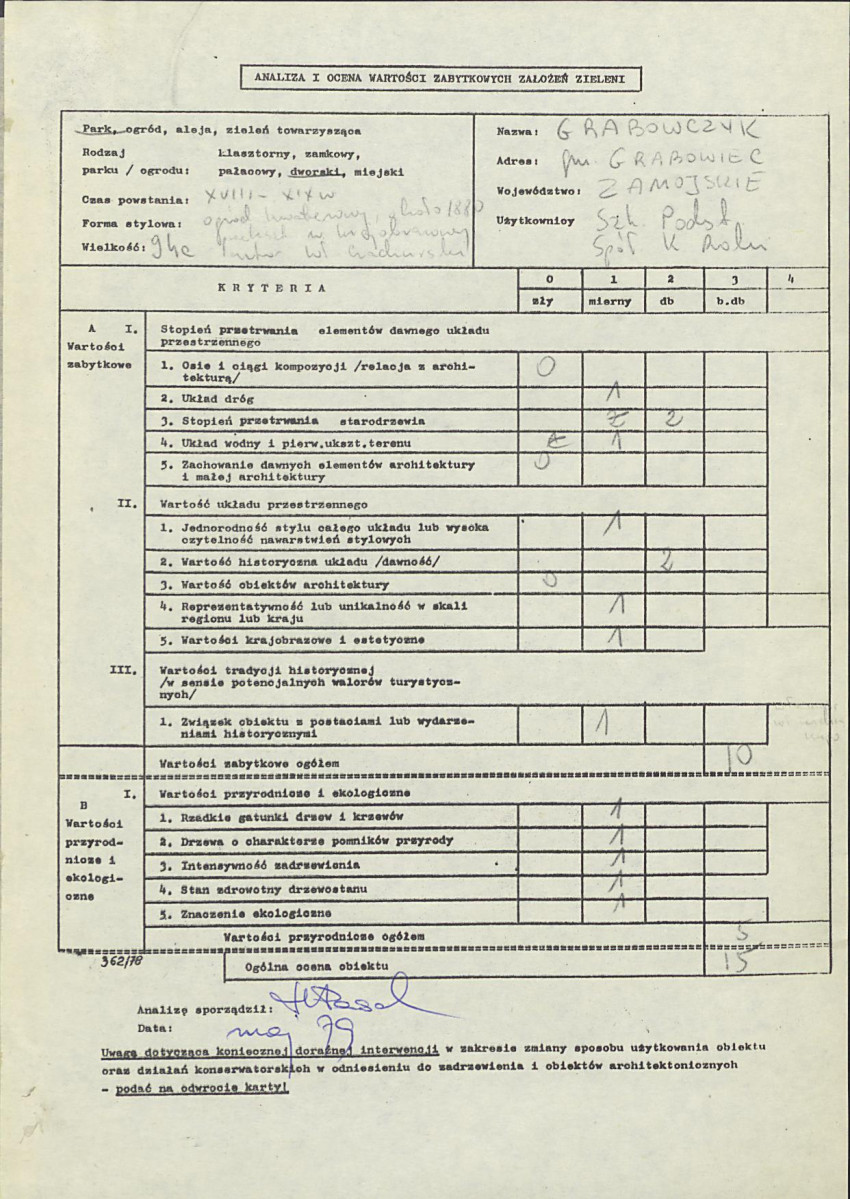 ANALIZA I OCENA WARTOŚCI ZABYTKOWYCH ZAŁOŻEŃ ZIELENI
Park, ogród, aleja, zieleń towarzysząca
Rodzaj klasztorny, zamkowy,
parku / ogrodu: pałacowy, dworski, miejski
Czas powstania: XVIII - XIX w
Forma stylowa: ogród kwaterowy, około 1880
Wielkość: 9 ha
Nazwa: GRABOWCZYK
Adres: gm. GRABOWIEC
Województwo: ZAMOJSKIE
Użytkownicy Szk. Podst.
Spół. K. Roln
KRYTERIA 0 1 2 3 4
zły mierny db b.db
A I. Stopień przetrwania elementów dawnego układu
Wartości przestrzennego
zabytkowe
1. Osie i ciągi kompozycji /relacja z archi-
tekturą/ 0
2. Układ dróg 1
3. Stopień przetrwania starodrzewia 2
4. Układ wodny i pierw.ukszt.terenu 1
5. Zachowanie dawnych elementów architektury 0
i małej architektury
II. Wartość układu przestrzennego
1. Jednorodność stylu całego układu lub wysoka 1
czytelność nawarstwień stylowych
2. Wartość historyczna układu /dawność/ 2
3. Wartość obiektów architektury 0
4. Reprezentatywność lub unikalność w skali 1
regionu lub kraju
5. Wartości krajobrazowe i estetyczne 1
III. Wartości tradycji historycznej
/w sensie potencjalnych walorów turystycz-
nych/
1. Związek obiektu z postaciami lub wydarze- 1
niami historycznymi
Wartości zabytkowe ogółem 10
I. Wartości przyrodnicze i ekologiczne
B
Wartości
przyrod-
nicze i
ekologi-
czne
1. Rzadkie gatunki drzew i krzewów 1
2. Drzewa o charakterze pomników przyrody 1
3. Intensywność zadrzewienia 1
4. Stan zdrowotny drzewostanu 1
5. Znaczenie ekologiczne 1
Wartości przyrodnicze ogółem 5
362/78
Ogólna ocena obiektu 15
Analizę sporządził:
Data: maj 79
Uwagę dotyczącą koniecznej doraźnej interwencji w zakresie zmiany sposobu użytkowania obiektu
oraz działań konserwatorskich w odniesieniu do zadrzewienia i obiektów architektonicznych
- podać na odwrocie karty!